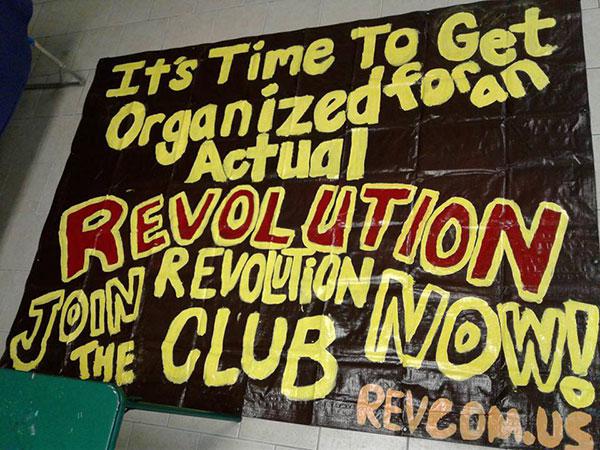 It's Time To Get
Organized for an
Actual
REVOLUTION
JOIN REVOLUTION NOW!
THE CLUB
REVCOM.US